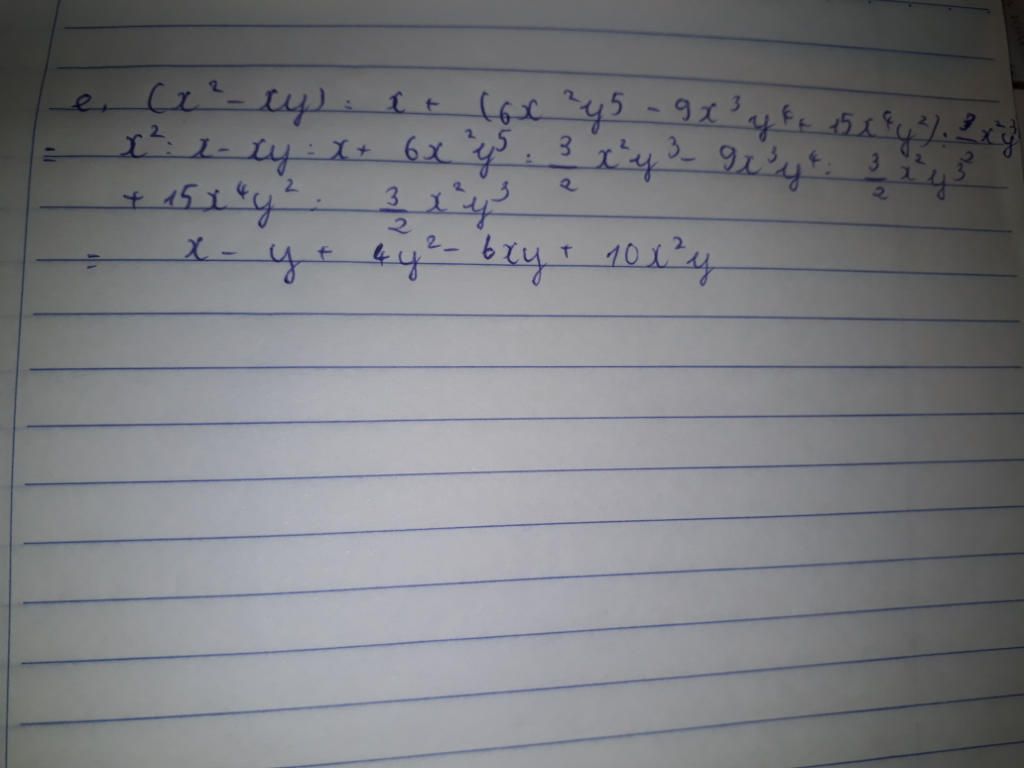 e, (x² - xy) : x + (6x²y5 - 9x³y⁴ + 15x⁴y²) : 3/2 x²y³
= x² : x - xy : x + 6x²y⁵ : 3/2 x²y³ - 9x³y⁴ : 3/2 x²y³
+ 15x⁴y² : 3/2 x²y³
= x - y + 4y² - 6xy + 10x²y